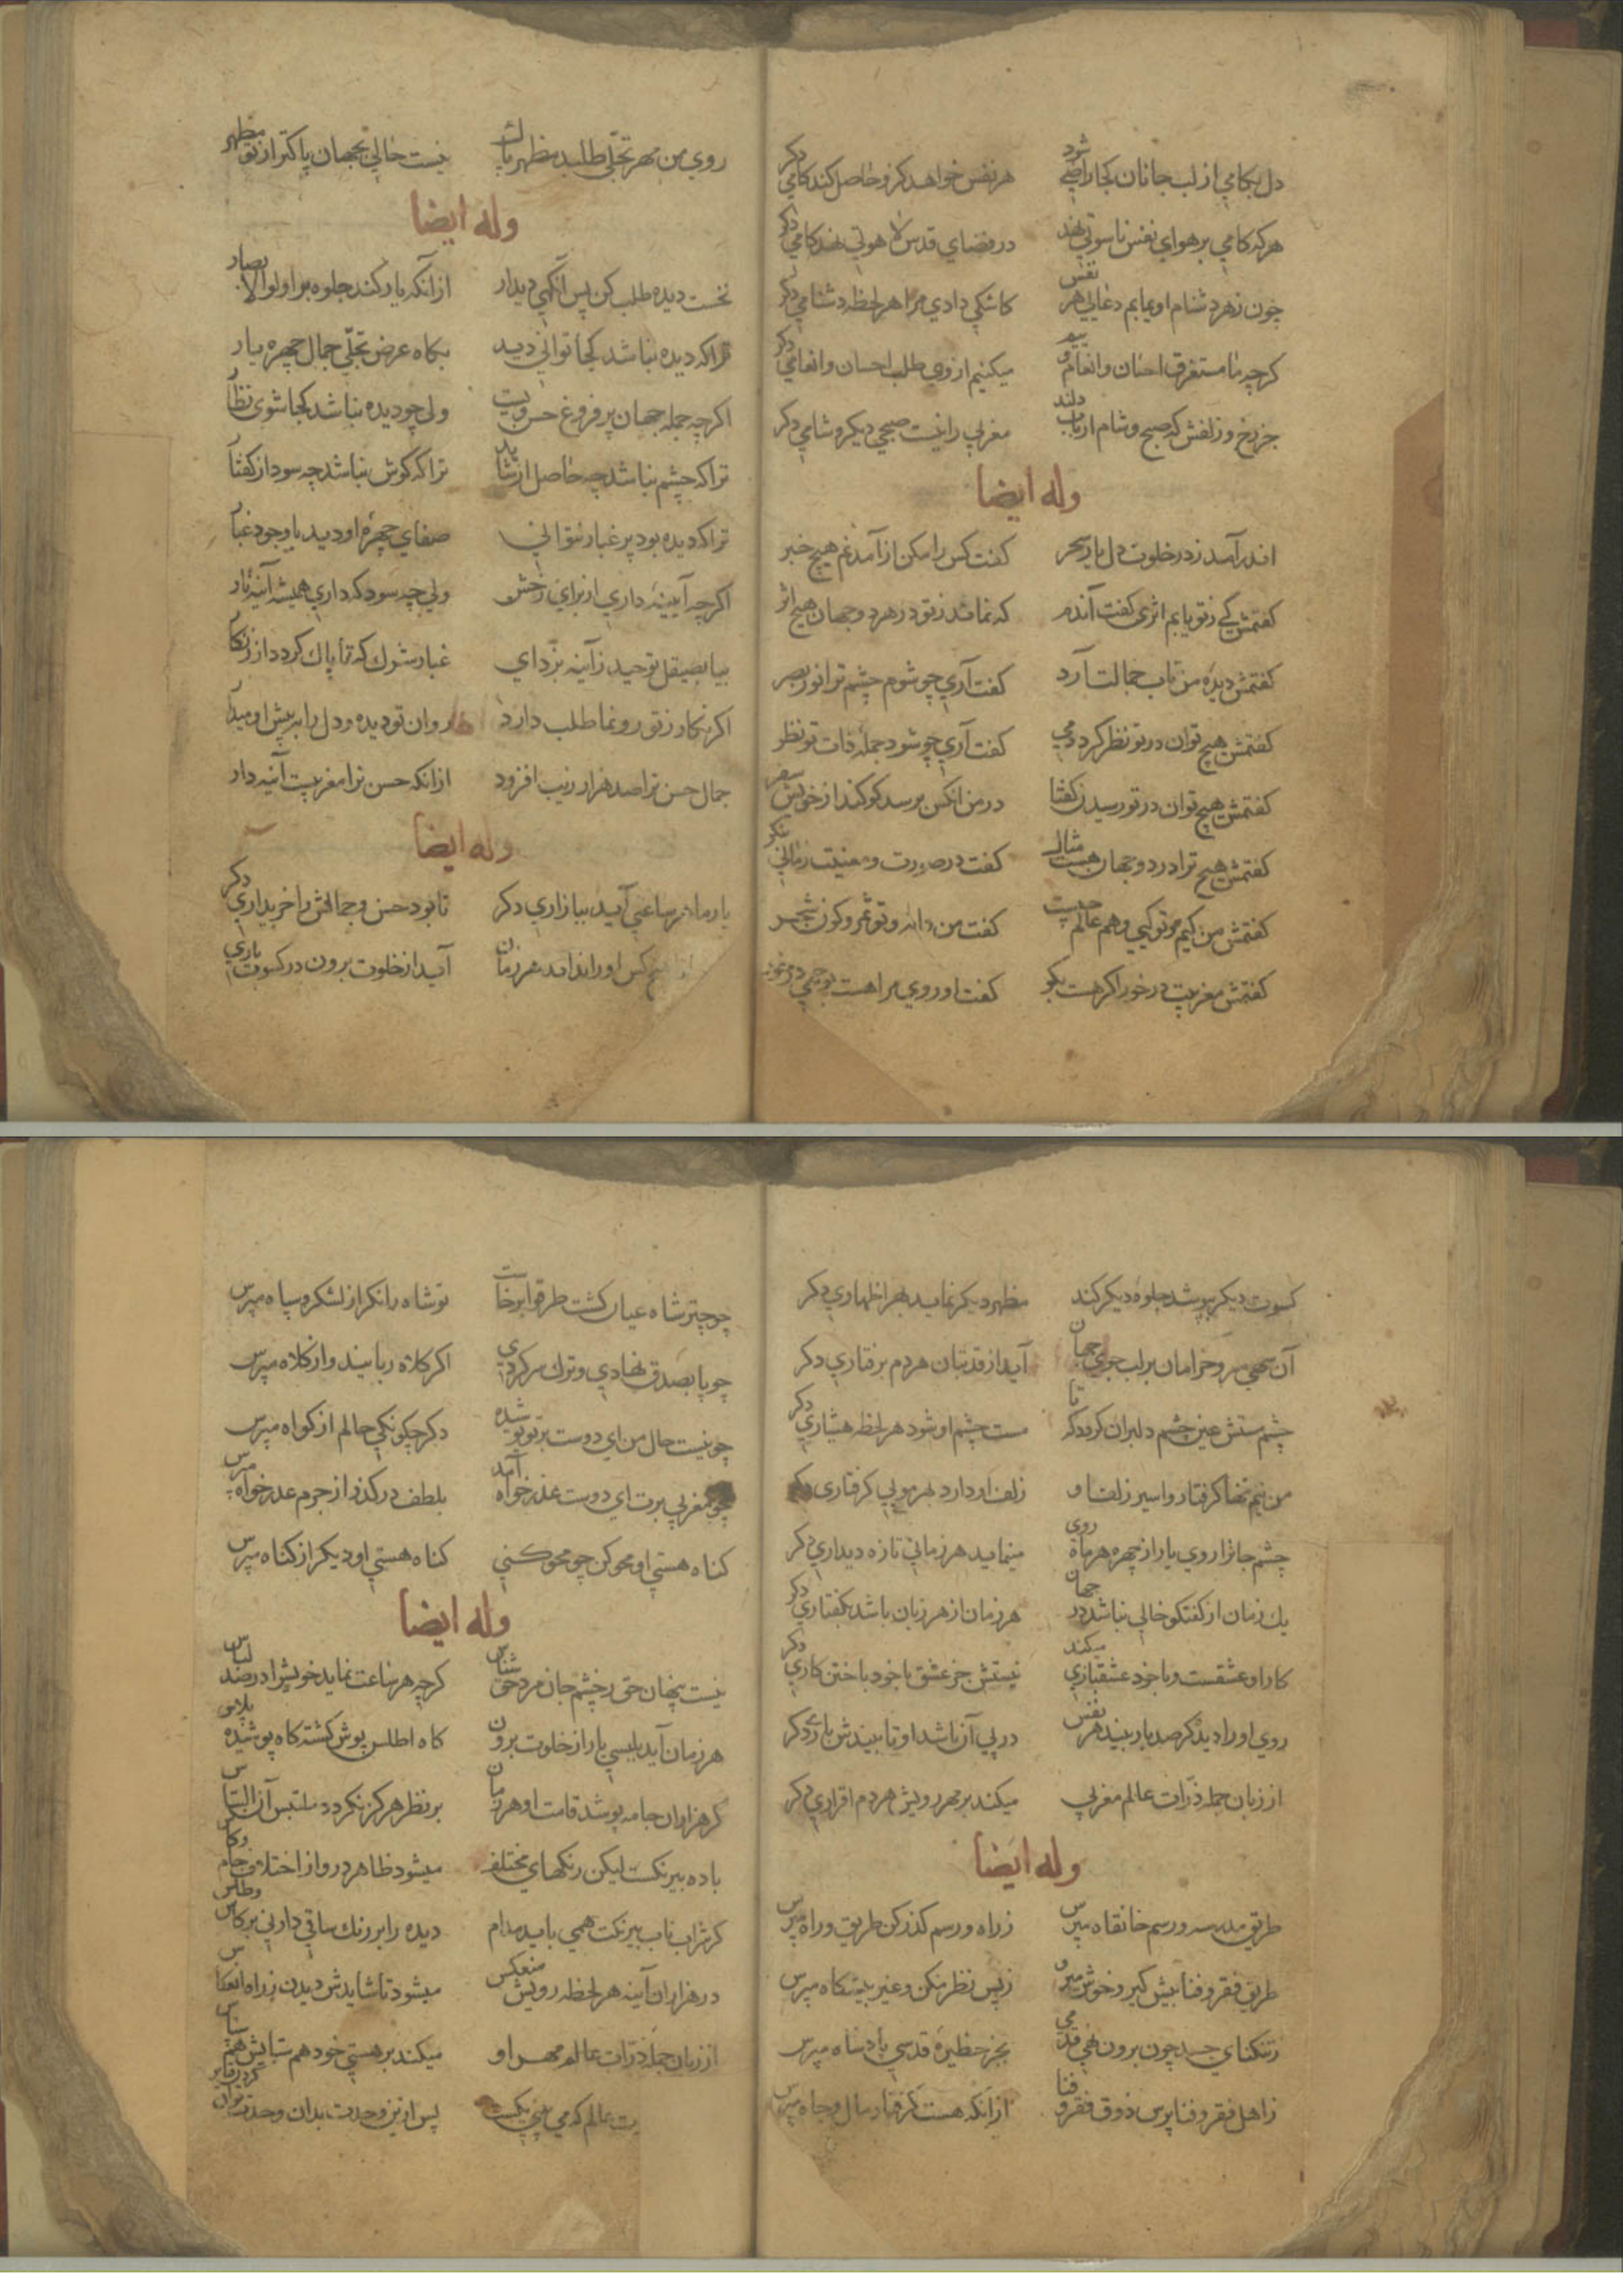 دل بکامی از لب جانان کجا راضی شود هر نفس خواهد کزو حاصل کند کامی دکر
هر که کامی بر هوای نفس ناسوتی نهد در فضای قدس لاهوتی نهد کامی دکر
چون زهر دشنام او یابم دعایی هر نفس کاشکی دادی مرا هر لحظه دشنامی دکر
کرچه ما مستغرق احسان و انعام ویئم میکنیم از وی طلب احسان و انعامی دکر
جز رخ و زلفش که صبح و شام ارباب دلند مغربی را نیست صبحی دیکر و شامی دکر
وله ایضا
اندر آمد ز در خلوت دل یار سحر کفت کس را مکن از آمدنم هیچ خبر
کفتمش کی ز تو یابم اثری کفت آندم که نماند ز تو در هر دو جهان هیچ اثر
کفتمش دیده من تاب جمالت آرد کفت آری چو شوم چشم ترا نور بصر
کفتمش هیچ توان در تو نظر کرد دمی کفت آری چو شود جمله ذات تو نظر
کفتمش هیچ توان در تو رسیدن کفتا در من انکس برسد کو کند از خویش سفر
کفتمش هیچ ترا در دو جهان هست مثال کفت در صورت و معنیت زمانی بنکر
کفتمش من کیم و تو کیی و هم عالم چیست کفت من دانه و تو ثمر و کون شجر
کفتمش مغربیت در خور اکر هست بکو کفت او روی مرا هست بوجهی در خور
روی من مهر تجلی طلبد مظهر پاک نیست خالی بجهان پاکتر از تو مظهر
وله ایضا
نخست دیده طلب کن پس آنکهی دیدار از آنکه یار کند جلوه بر اولو الابصار
ترا که دیده نباشد کجا توانی دید بکاه عرض تجلی جمال چهره یار
اکرچه جمله جهان پر فروغ حسن ویست ولی چو دیده نباشد کجا شوی نظار
ترا که چشم نباشد چه حاصل از شاهد ترا که کوش نباشد چه سود از کفتار
ترا که دیده بود پر غبار نتوانی صفای چهره او دید با وجود غبار
اکرچه آیینه داری از برای رخش ولی چه سود که داری همیشه آینه تار
بیا بصیقل توحید ز آینه بزدای غبار شرک که تا پاک کردد از زنکار
اکر نکار ز تو رونما طلب دارد روان تو دیده و دل را به پیش او میدار
جمال حسن ترا صد هزار زیب افزود از آنکه حسن ترا مغربیست آینه دار
وله ایضا
یار ما هر ساعتی آید ببازاری دکر تا بود حسن و جمالش را خریداری دکر
هیچ کس او را نداند هر زمان آید از خلوت برون در کسوت یاری
کسوت دیکر بپوشد جلوه دیکر کند مظهر دیکر نماید بهر اظهاری دکر
آن سهی سرو خرامان بر لب جوی جهان آید از قد بتان هر دم برفتاری دکر
چشم مستش عین چشم دلبران کردد که تا مست چشم او شود هر لحظه هشیاری دکر
من نیم تنها کرفتار و اسیر زلف او زلف او دارد بهر مویی کرفتاری دکر
چشم جانرا روی یار از چهره هر ماه روی مینماید هر زمانی تازه دیداری دکر
یک زمان از کفتکو خالی نباشد در جهان هر زمان از هر زبان باشد بکفتاری دکر
کار او عشقست و با خود عشقبازی میکند نیستش جز عشق با خود باختن کاری دکر
روی او را دید کر صد بار بیند هر نفس در پی آن باشد او تا بیندش باری دکر
از زبان جمله ذرات عالم مغربی میکند بر مهر رویش هر دم اقراری دکر
وله ایضا
طریق مدرسه و رسم خانقاه مپرس ز راه و رسم کذر کن طریق و راه مپرس
طریق فقر و فنا پیش کیر و خوش میرو ز پس نظر مکن و غیر پیشکاه مپرس
ز تنکنای جسد چون برون نهی قدمی بجز حظیره قدسی پادشاه مپرس
ز اهل فقر و فنا پرس ذوق فقر و فنا از آنکه هست کرفتار مال و جاه مپرس
چو چتر شاه عیان کشت طرقوا برخاست تو شاه را نکر از لشکر و سپاه مپرس
چو پا بصدق نهادی و ترک سر کردی اکر کلاه ربایند و از کلاه مپرس
چو نیست حال من ای دوست بر تو پوشیده دکر چکونکی حالم از کواه مپرس
چو مغربی برت ای دوست عذر خواه آمد بلطف در کذر از جرم عذر خواه مپرس
کناه هستی او محو کن چو محو کنی کناه هستی او دیکر از کناه مپرس
وله ایضا
نیست پنهان حق ز چشم جان مرد حق شناس کرچه هر ساعت نماید خویش را در صد لباس
هر زمان آید بلبسی یار از خلوت برون کاه اطلس پوش کشته کاه پوشیده پلاس
کر هزاران جامه پوشد قامت او هر زمان بر نظر هرکز نکردد ملتبس آن التباس
باده بیرنکست لیکن رنکهای مختلف میشود ظاهر درو از اختلاف جام و کاس
کر شراب ناب بیرنکت همی باید مدام دیده را بر رنک ساقی دار نی بر کاس و طاس
در هزاران آینه هر لحظه رویش منعکس میشود تا شایدش دیدن ز راه انعکاس
از زبان جمله ذرات عالم مهر او میکند بر هستی خود هم ستایش هم سپاس
عالم که می بینی پس ازین وحدت بدان وحدت توان کردن قیاس